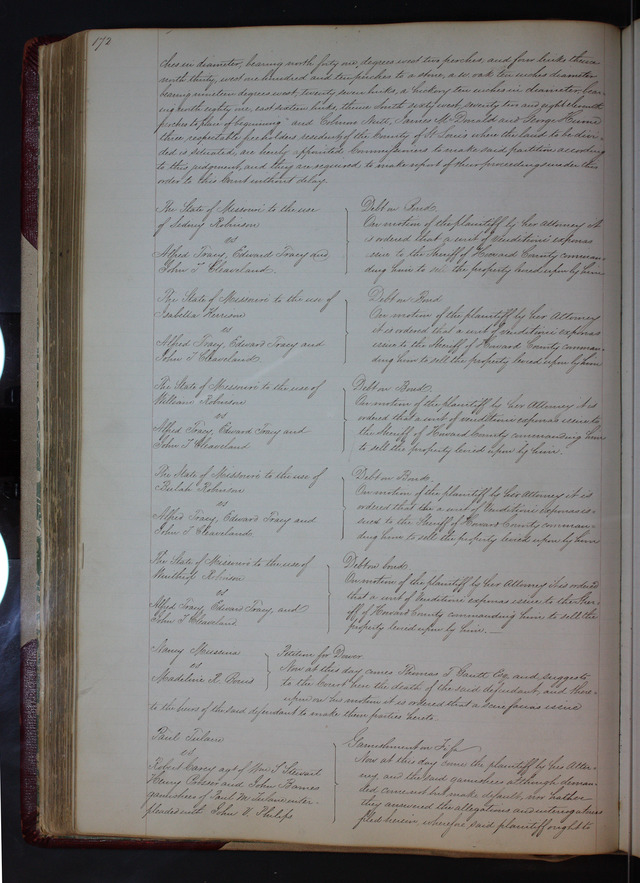 172
ches in diameter, bearing north fifty one, degrees west two perches, and four links thence
north thirty, west one hundred and ten perches to a stone, a w. oak ten inches diameter
bearing nineteen degrees west, twenty seven links, a hickory ten inches in diameter, bear-
ing north eighty one, east sixteen links, thence South sixty west, seventy two and eight tenth
perches to place of beginning" and James McDonald and George
three, respectable, freeholders residents of the County of St Louis where the land to be divi-
ded is situated, are hereby appointed Commissioners to make said partition according
to this judgment, and they are required to make report of their proceedings under this
order to this Court without delay.
The State of Missouri to the use
of Sidney Robinson
vs
Alfred Tracy, Edward Tracy and
John T Cleaveland.
Debt on Bond.
On motion of the plaintiff by her Attorney it
is ordered that a writ of Venditioni exponas
issue to the Sheriff of Howard County comman-
ding him to sell the property levied upon by him
The State of Missouri to the use of
Isabella
vs
Alfred Tracy, Edward Tracy and
John T Cleaveland.
Debt on Bond
On motion of the plaintiff by her Attorney
it is ordered that a writ of venditioni exponas
issue to the Sheriff of Howard County comman-
ding him to sell the property levied upon by him
The State of Missouri to the use of
William Robinson
vs
Alfred Tracy, Edward Tracy and
John T Cleaveland
Debt on Bond.
On motion of the Plaintiff by her Attorney it is
ordered that a writ of venditioni exponas issue to
the Sheriff of Howard County commanding him
to sell the property levied upon by him.
The State of Missouri to the use of
Beulah Robinson
vs
Alfred Tracy, Edward Tracy and
John T Cleaveland.
Debt on Bond.
On motion of the plaintiff by her Attorney it is
ordered that the a writ of Venditioni exponas is-
sued to the Sheriff of Howard County comman-
ding him to sell the property levied upon by him
The State of Missouri to the use of
Winthrop Robinson
vs
Alfred Tracy, Edward Tracy, and
John T Cleaveland.
Debt on bond.
On motion of the plaintiff by her Attorney it is ordered
that a writ of Venditioni exponas issue to the Sher-
iff of Howard County commanding him to sell the
property levied upon by him. —
Nancy
vs
Madeline R.
Petition for Dower
Now at this day comes Thomas T Gantt Esq and suggests
to the Court here the death of the said defendant, and there-
upon on his motion it is ordered that a scire facias issue
to the heirs of the said defendant to make them parties hereto.
Paul Tulane
vs
Robert Carves agt of Wm T Stewart
Henry and John Haines
garnishees of Paul M. inter-
pleaded with John V. Philips
Garnishment on Fi fa
Now at this day come the plaintiff by his Attor-
ney and the said garnishees although deman-
ded came not but make default, nor hath
they answered the allegations and interrogatories
filed herein, wherefore, said plaintiff ought to